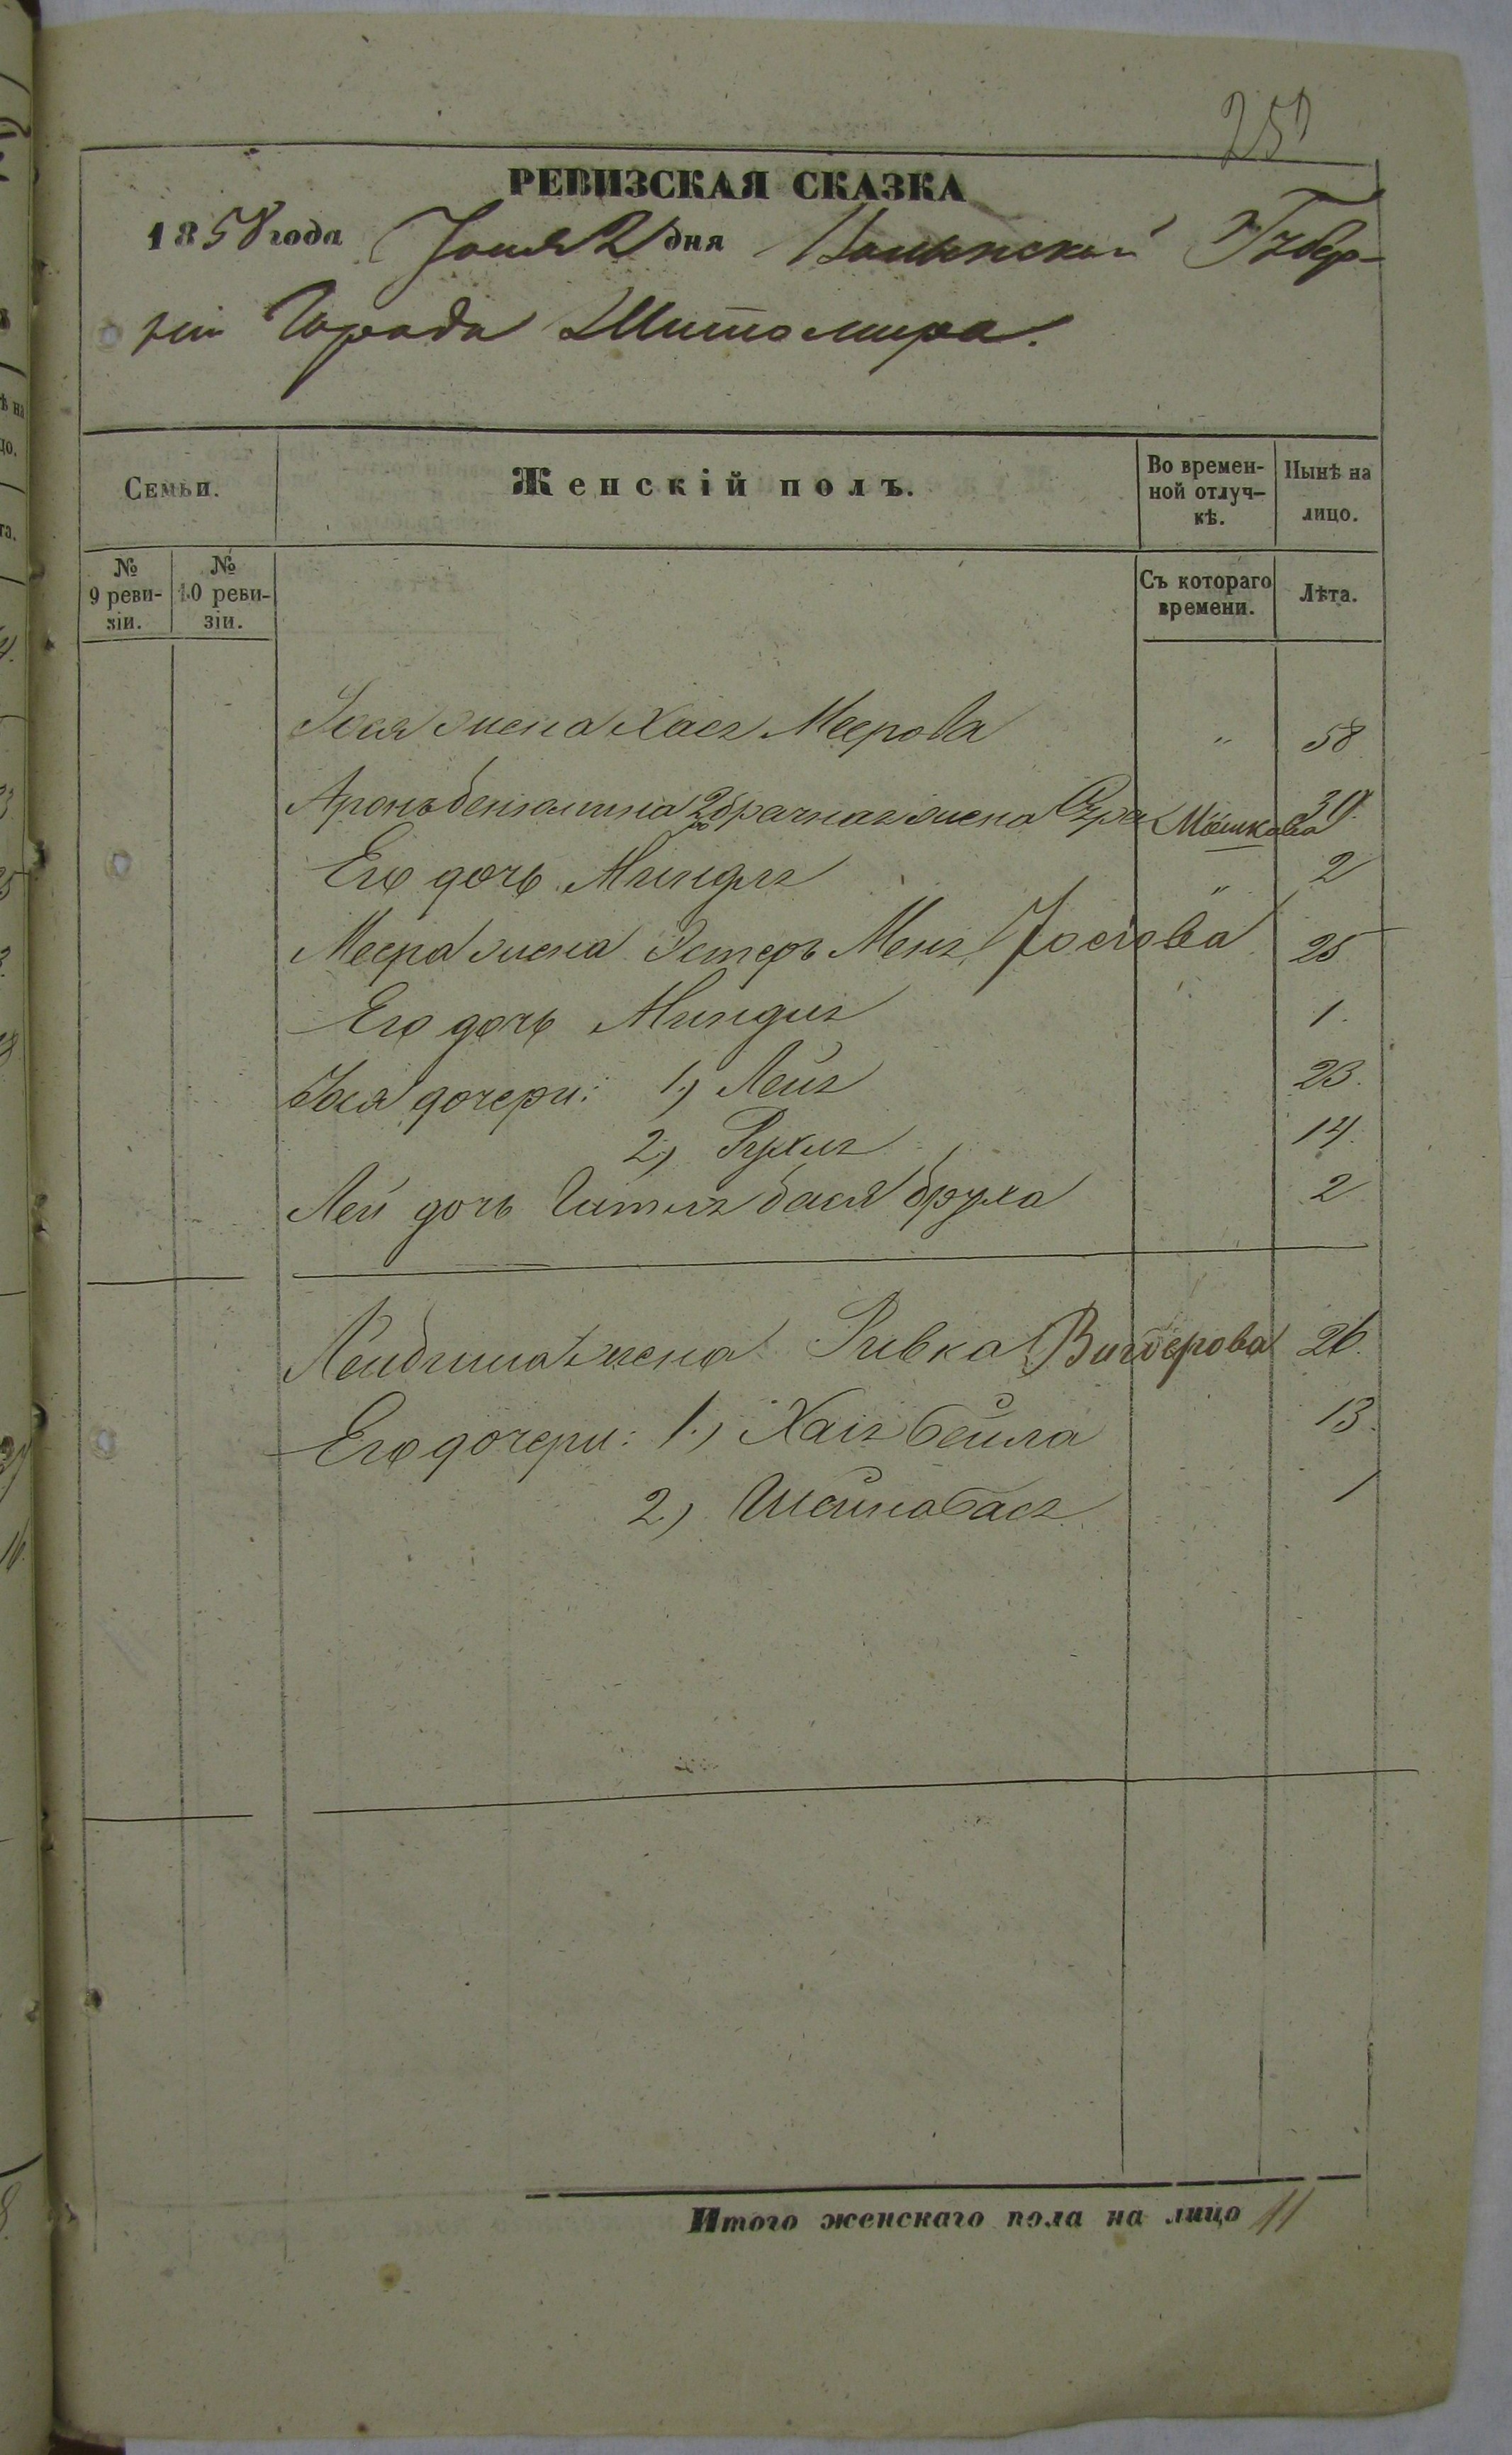 252
РЕВИЗСКАЯ СКАЗКА
1858 года Юня 2 дня Волынской Губер-
ніи Города Житомира.
Семьи.
Женскій полъ.
Во времен-
ной отлуч-
кѣ.
Нынѣ на
лицо.
№
9 реви-
зіи.
№
10 реви-
зіи.
Съ котораго
времени.
Лѣта.
жена Хася Меерова " 58
Аронъ бениамина 2 брачная жена Сура Мошкова 30
Его дочь Миндля " 2
Меера жена Эстеръ Меня Іосіова 25
Его дочь Миндля 1.
дочери: 1.) Лея 23.
2.) Рухля 14.
Леи дочь Гитля бася бруха 2
Лейбиша жена Ривка Вигдерова 26.
Его дочери: 1.) Хая бейла 13.
2.) Шейна бася 1
Итого женскаго пола на лицо 11